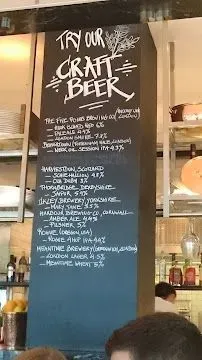 TRY OUR
CRAFT
BEER
THE FIVE POINTS BREWING CO (HACKNEY, LONDON)
- HOOK ISLAND RED 6%
- PALE ALE 4.4%
- LONDON SMOKE 7.8%
BEAVERTOWN (TOTTENHAM HALE, LONDON)
- NECK OIL SESSION IPA 4.3%
HARVIESTOUN, SCOTLAND
- SCHIEHALLION 4.8%
- OLA DUBH 8%
THORNBRIDGE, DERBYSHIRE
- JAIPUR 5.9%
ILKLEY BREWERY, YORKSHIRE
- MARY JANE 3.5%
HARBOUR BREWING CO, CORNWALL
- AMBER ALE 4.4%
- PILSNER 5%
ROGUE (OREGON, USA)
4 HOP IPA 4.4%
MEANTIME BREWERY (GREENWICH, LONDON)
- LONDON LAGER 4.5%
- MEANTIME WHEAT 5%